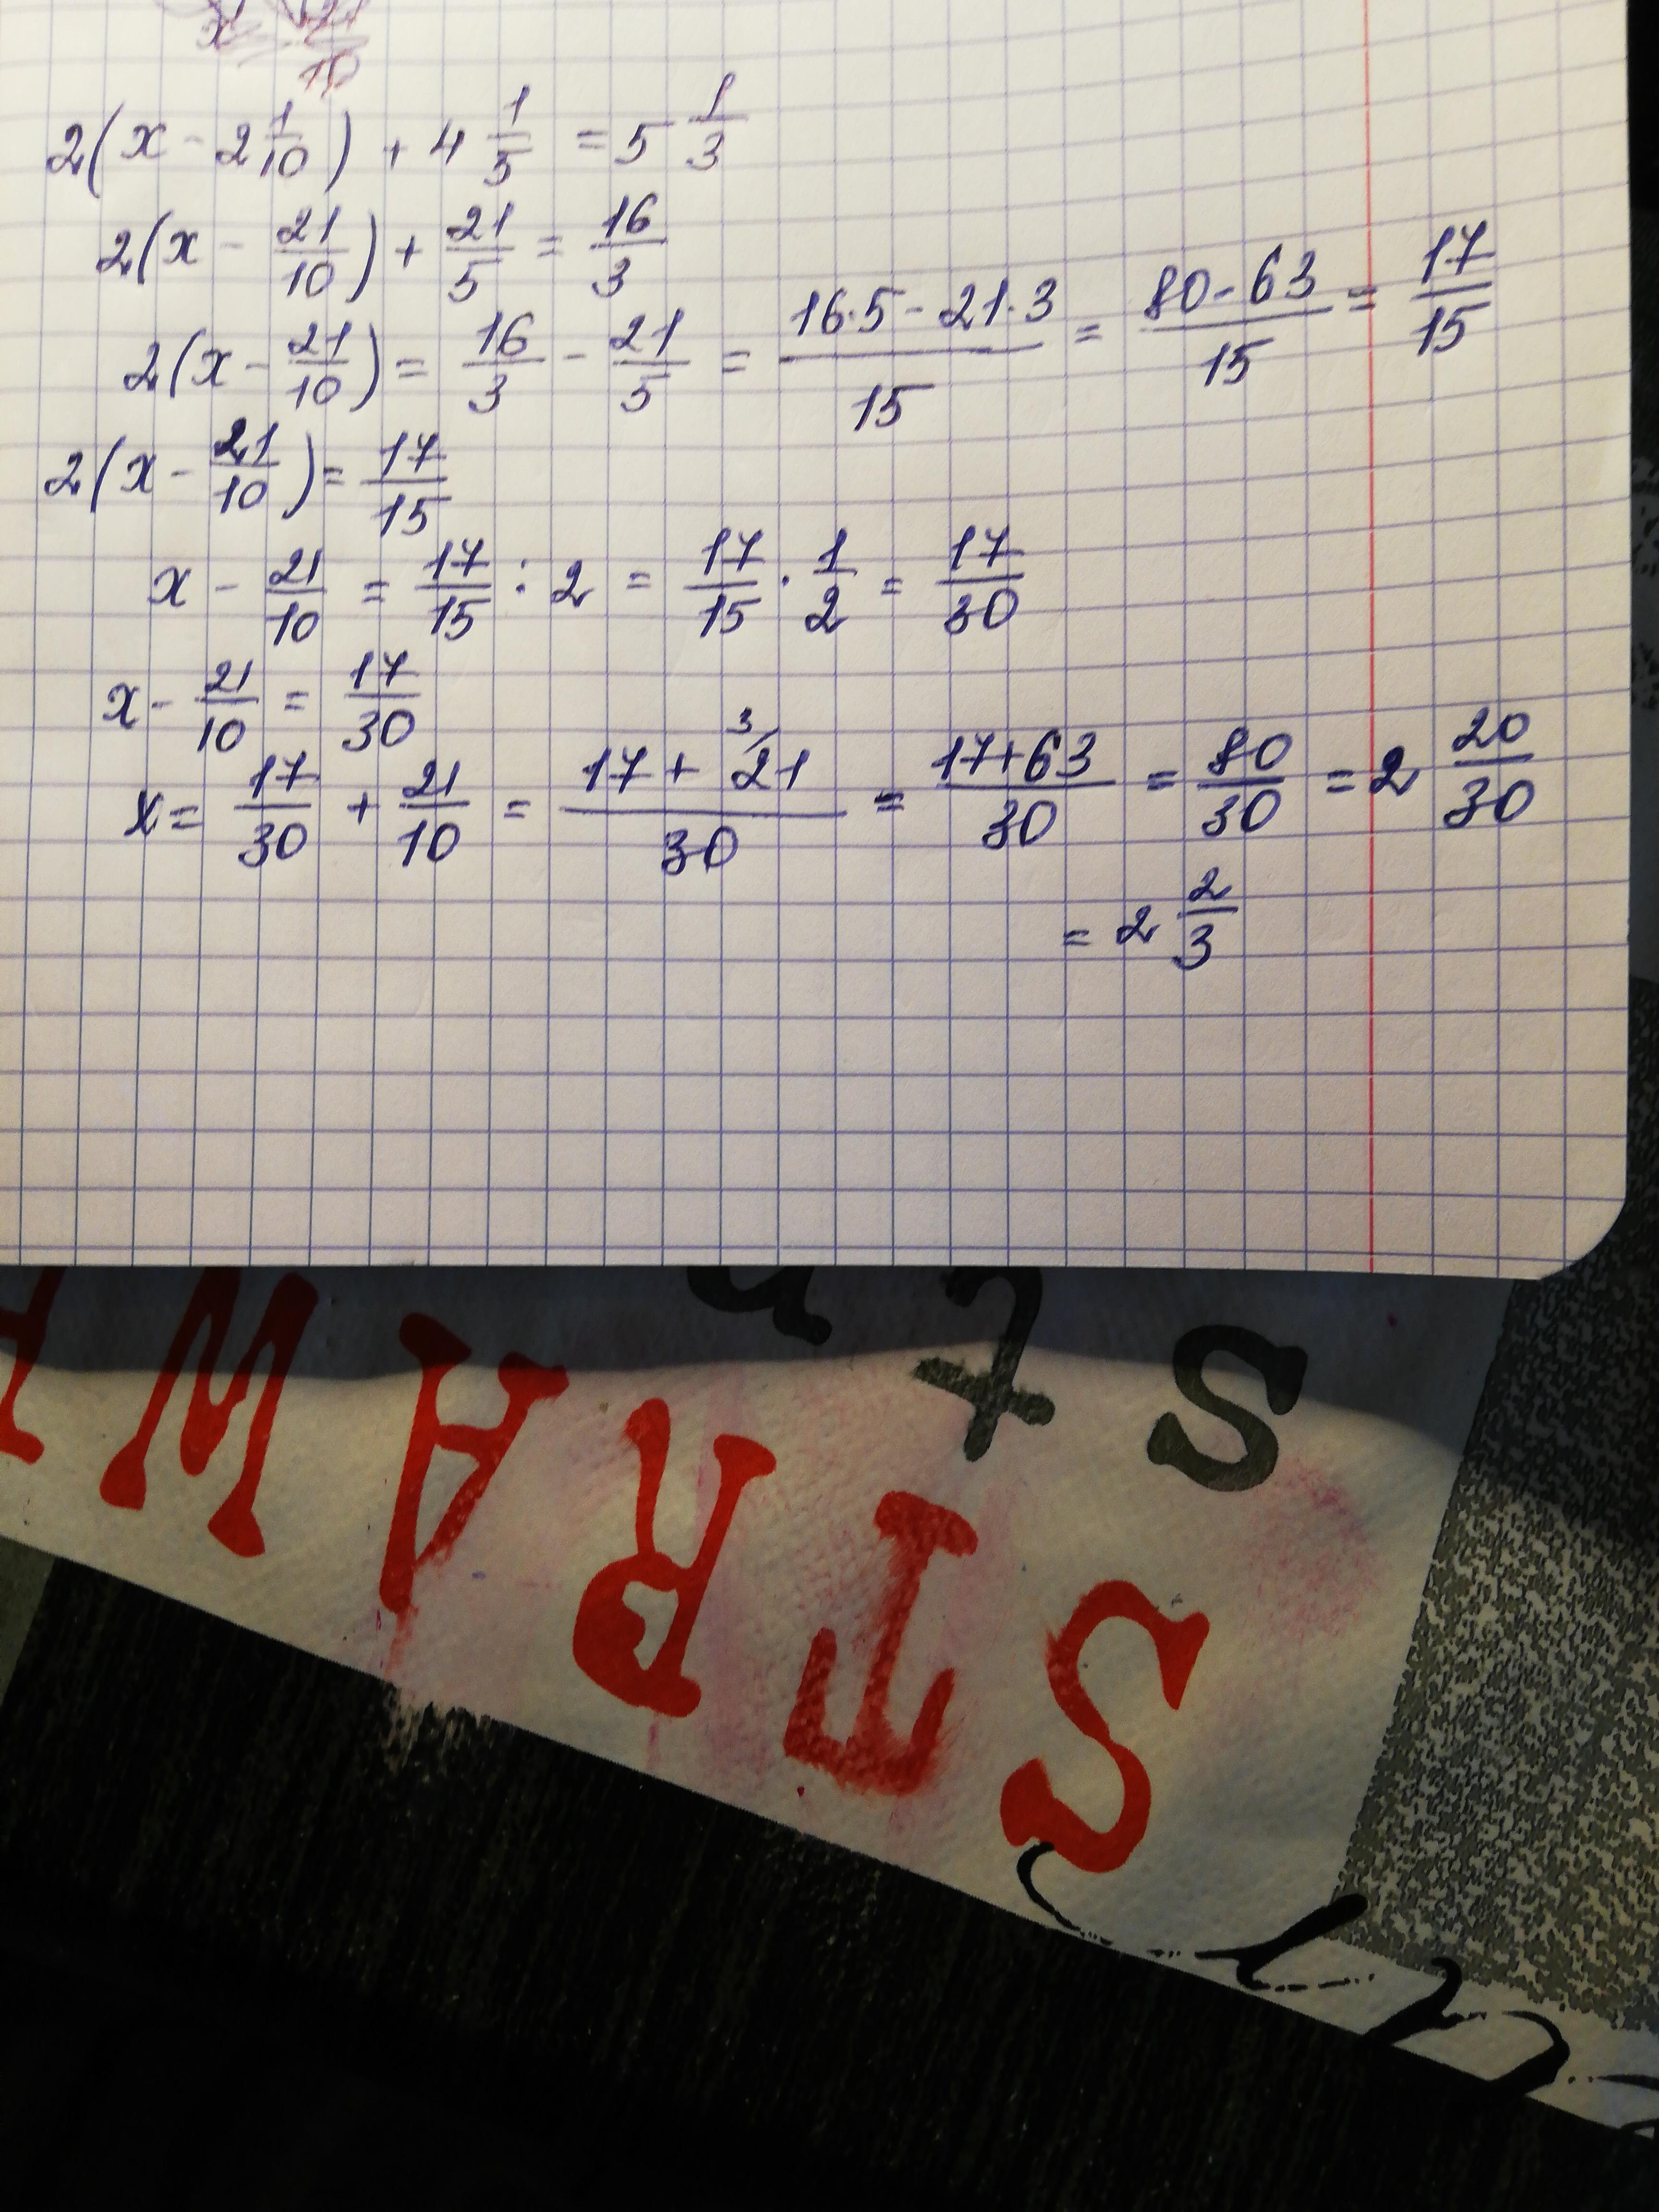 x = 21/10
2(x - 2 1/10) + 4 1/5 = 5 1/3
2(x - 21/10) + 21/5 = 16/3
2(x - 21/10) = 16/3 - 21/5 = (16·5 - 21·3)/15 = (80 - 63)/15 = 17/15
2(x - 21/10) = 17/15
x - 21/10 = 17/15 : 2 = 17/15 · 1/2 = 17/30
x - 21/10 = 17/30
x = 17/30 + 21/10 = (17 + ³⁄21)/30 = (17+63)/30 = 80/30 = 2 20/30
= 2 2/3
st
STRAW